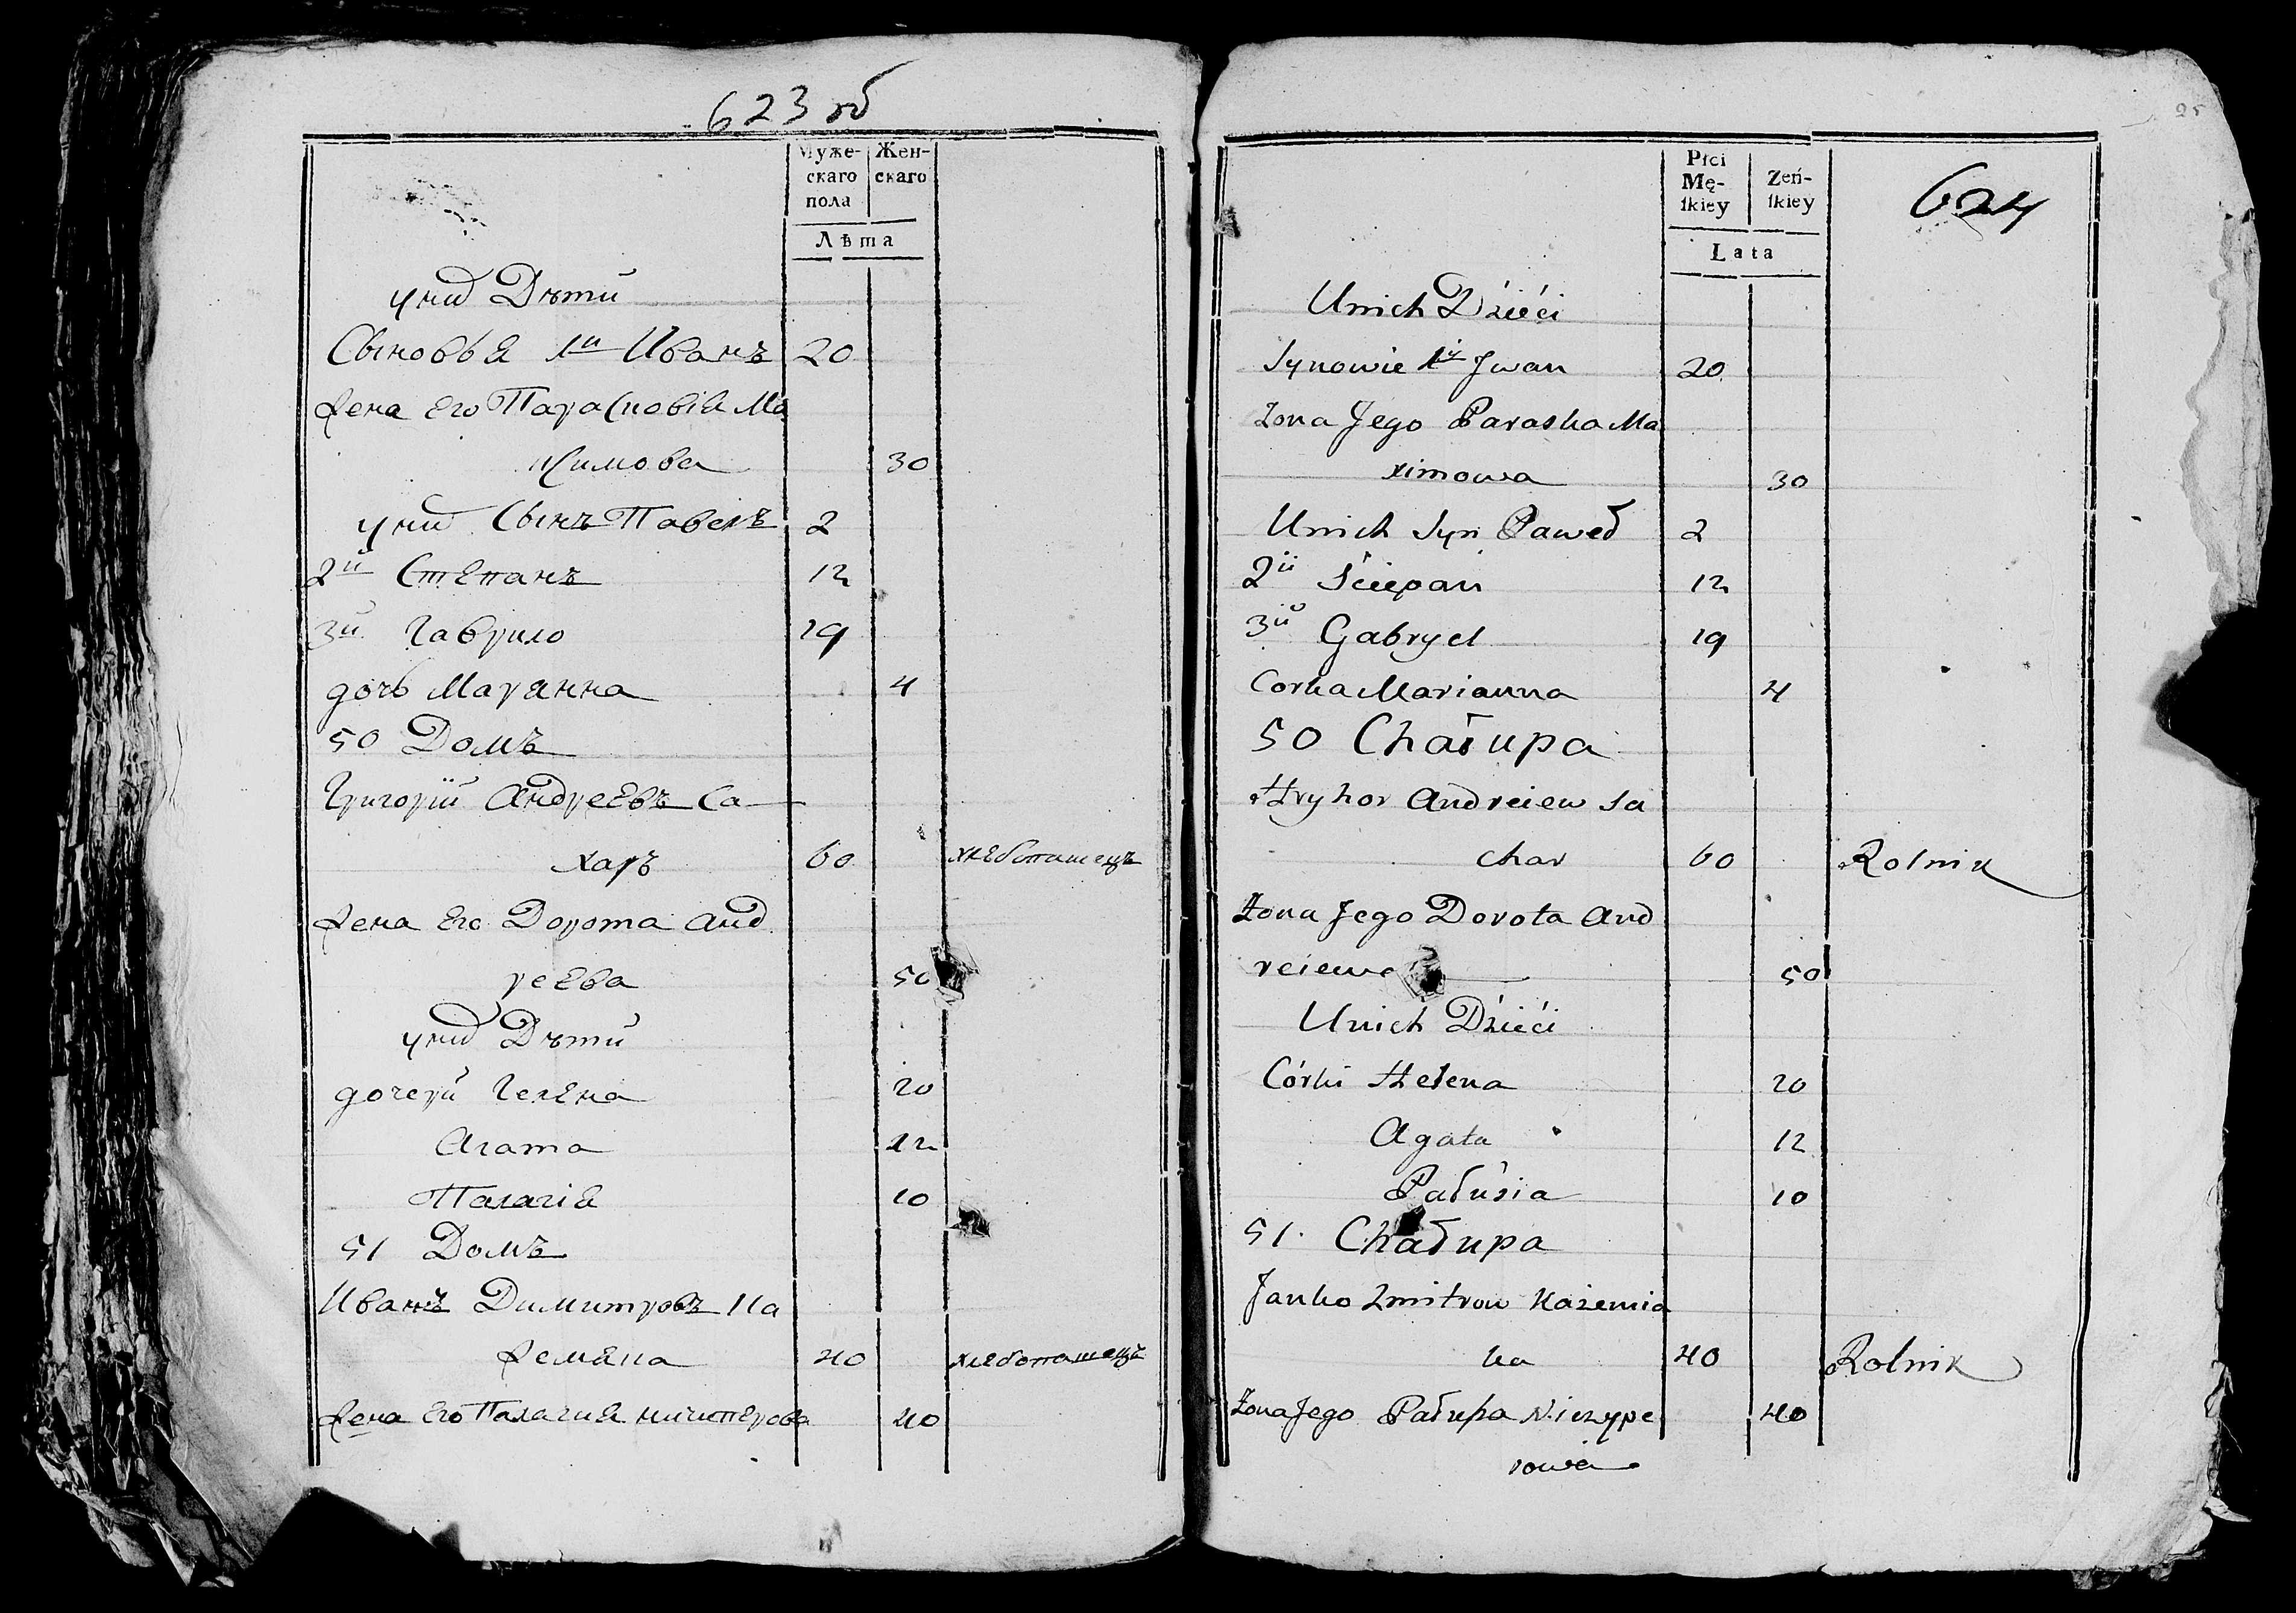 623 об
Муже-
скаго
пола
Жен-
скаго
Лѣта
у нид Дѣти
Сыновья 1й Иванъ 20
Жена Его Парасковія Ма
ксимова 30
у нид Сынъ Павелъ 2
2й Степанъ 12
3й Гаврило 19
дочь Марянна 4
50 Домъ
Григорій Андреевъ Са
харъ 60 хлебопашецъ
Жена Его Дорота Анд
реева 50
у нид Дѣти
дочери Гелена 20
Агата 12
Палагія 10
51 Домъ
Иванъ Димитровъ Ка
жемяка 40 хлебопашецъ
Жена Его Палагия Ничиперова 40
25
Płci
Mę-
ſkiey
Zeń-
ſkiey
Lata
624
Unich Dzieći
Synowie 1й Jwan 20
Zona Jego Paraska Ma
ximowa 30
Unich Syn Paweł 2
2ii Sciepan 12
3ii Gabryel 19
Corka Marianna 4
50 Chałupa
Hryhor Andreiew Sa
char 60 Rolnik
Zona Jego Dorota And
reiewa 50
Unich Dzieći
Córki Helena 20
Agata 12
Pałusia 10
51. Chałupa
Janko Zmitrow Kazemia
ka 40 Rolnik
Zona Jego Pałuha Niczype 40
rowa